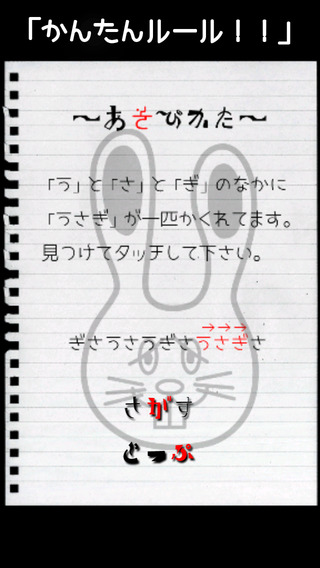 「かんたんルール！！」
～あそびかた～
「う」と「さ」と「ぎ」のなかに
「うさぎ」が一匹かくれてます。
見つけてタッチして下さい。
→→→
ぎさうさうぎさうさぎさ
さがす
とっぷ